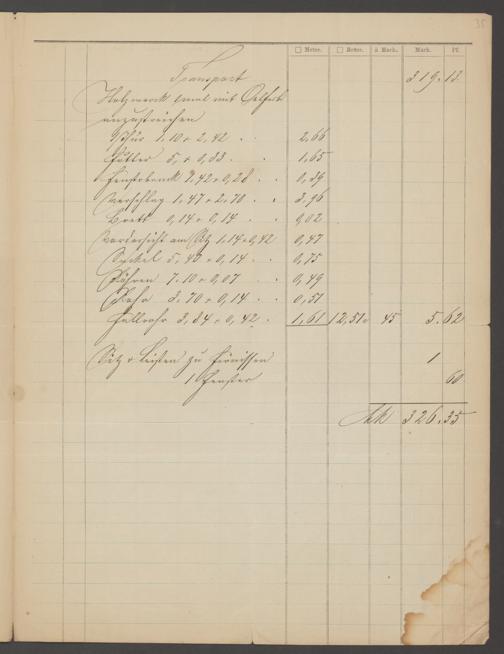 35
□ Meter. □ Meter. à Mark. Mark. Pf.
Transport 319.13
Holzwerck 1mal mit Oelfarb
anzustreichen
Thür 1,10 × 2,42 2,66
Futter 5, × 0,33 1,65
Fensterbanck 0,28
Verschlag 1,47 × 2,70 3,96
Brett 0,14 × 0,14 0,02
Vordersicht am Sitz 1,14 × 0,42 0,47
Sockel 0,14 0,75
7,10 × 0,07 0,49
Rohr 3,70 × 0,14 0,51
Fallrohr 3,84 × 0,42 1,61 12,51 45 5.62
Sitz & Leisten zu firnissen 1
1 Fenster 60
Mk 326.35